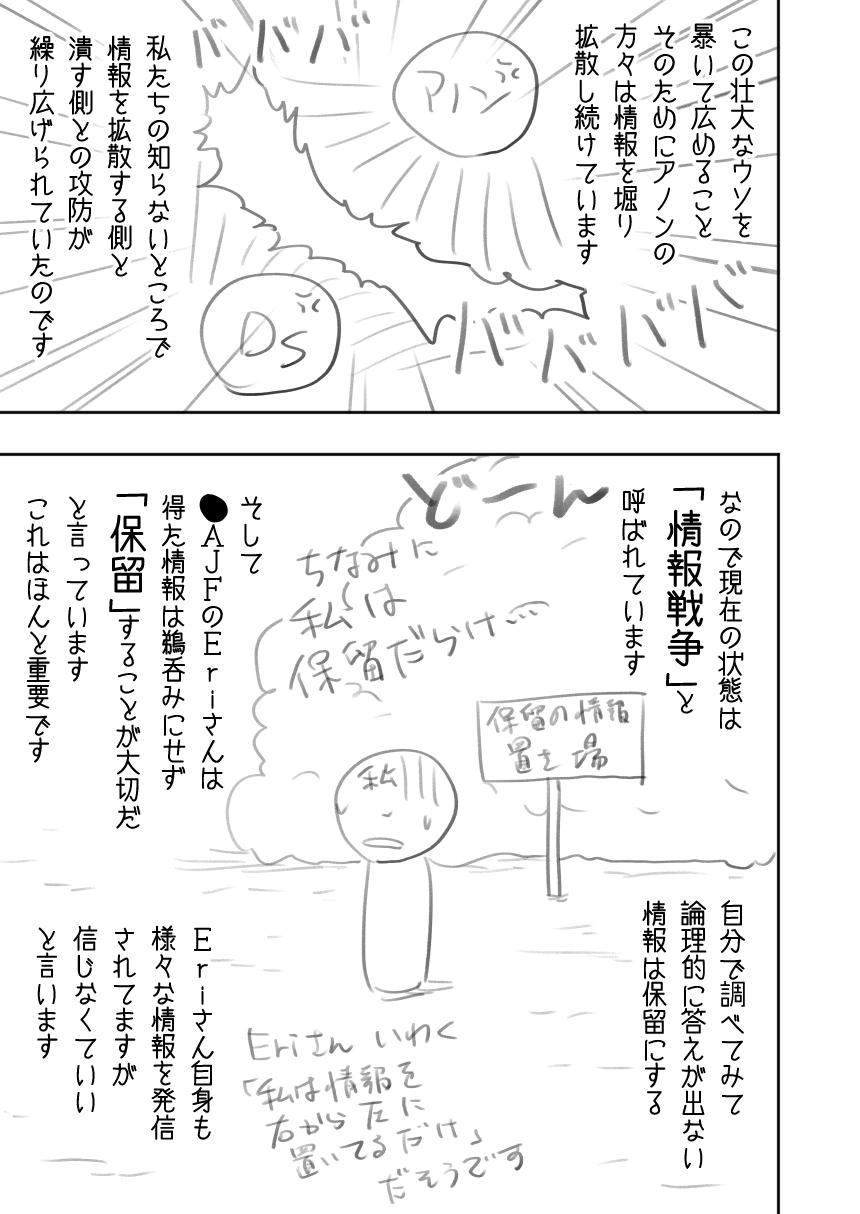 この壮大なウソを
暴いて広めること
そのためにアノンの
方々は情報を堀り
拡散し続けています
アノン
バババ
私たちの知らないところで
情報を拡散する側と
潰す側との攻防が
繰り広げられていたのです
DS
ババババ
なので現在の状態は
「情報戦争」と
呼ばれています
どーん
ちなみに
私は
保留だらけ…
そして
●AJFのEriさんは
得た情報は鵜呑みにせず
「保留」することが大切だ
と言っています
これはほんと重要です
保留の情報
置き場
私
自分で調べてみて
論理的に答えが出ない
情報は保留にする
Eriさん自身も
様々な情報を発信
されてますが
信じなくていい
と言います
Eriさん いわく
「私は情報を
右から左に
置いてるだけ」
だそうです